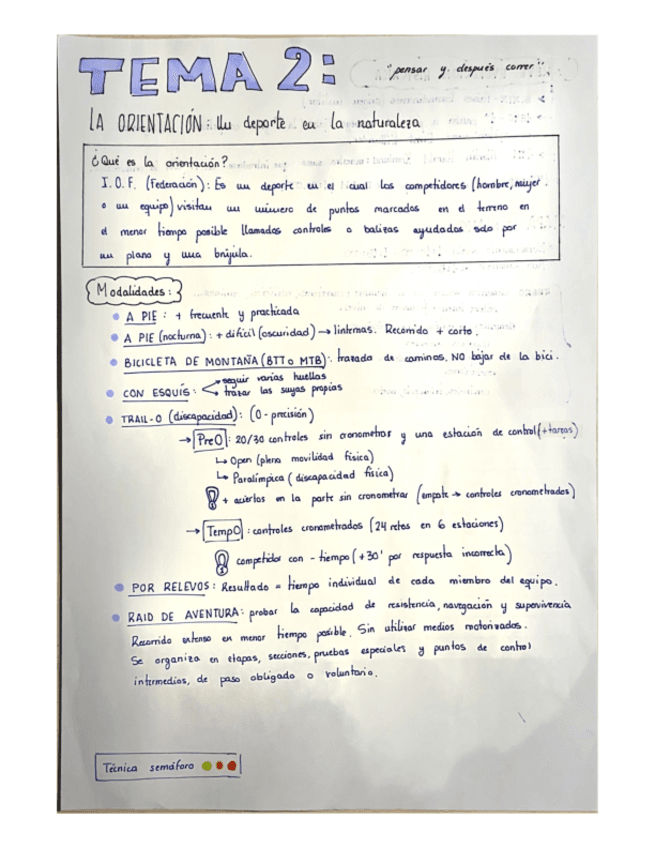 TEMA 2:
"pensar y después correr"
LA ORIENTACIÓN: Un deporte en la naturaleza
¿Qué es la orientación?
I.O.F. (Federación): Es un deporte en el cual los competidores (hombre, mujer
o un equipo) visitan un número de puntos marcados en el terreno en
el menor tiempo posible llamados controles o balizas ayudados solo por
un plano y una brújula.
Modalidades:
A PIE: + frecuente y practicada
A PIE (nocturna): + difícil (oscuridad) → linternas. Recorrido + corto.
BICICLETA DE MONTAÑA (BTT o MTB): trazada de caminos. NO bajar de la bici.
CON ESQUÍS: → seguir varias huellas
→ trazar las suyas propias
TRAIL-O (discapacidad): (O-precisión)
→ PreO: 20/30 controles sin cronometrar y una estación de control (+tareas)
↳ Open (plena movilidad física)
↳ Paralímpica (discapacidad física)
+ aciertos en la parte sin cronometrar (empate → controles cronometrados)
→ TempO: controles cronometrados (24 retos en 6 estaciones)
competidor con - tiempo (+30' por respuesta incorrecta)
POR RELEVOS: Resultado = tiempo individual de cada miembro del equipo.
RAID DE AVENTURA: probar la capacidad de resistencia, navegación y supervivencia
Recorrido extenso en menor tiempo posible. Sin utilizar medios motorizados.
Se organiza en etapas, secciones, pruebas especiales y puntos de control
intermedios, de paso obligado o voluntario.
Técnica semáforo